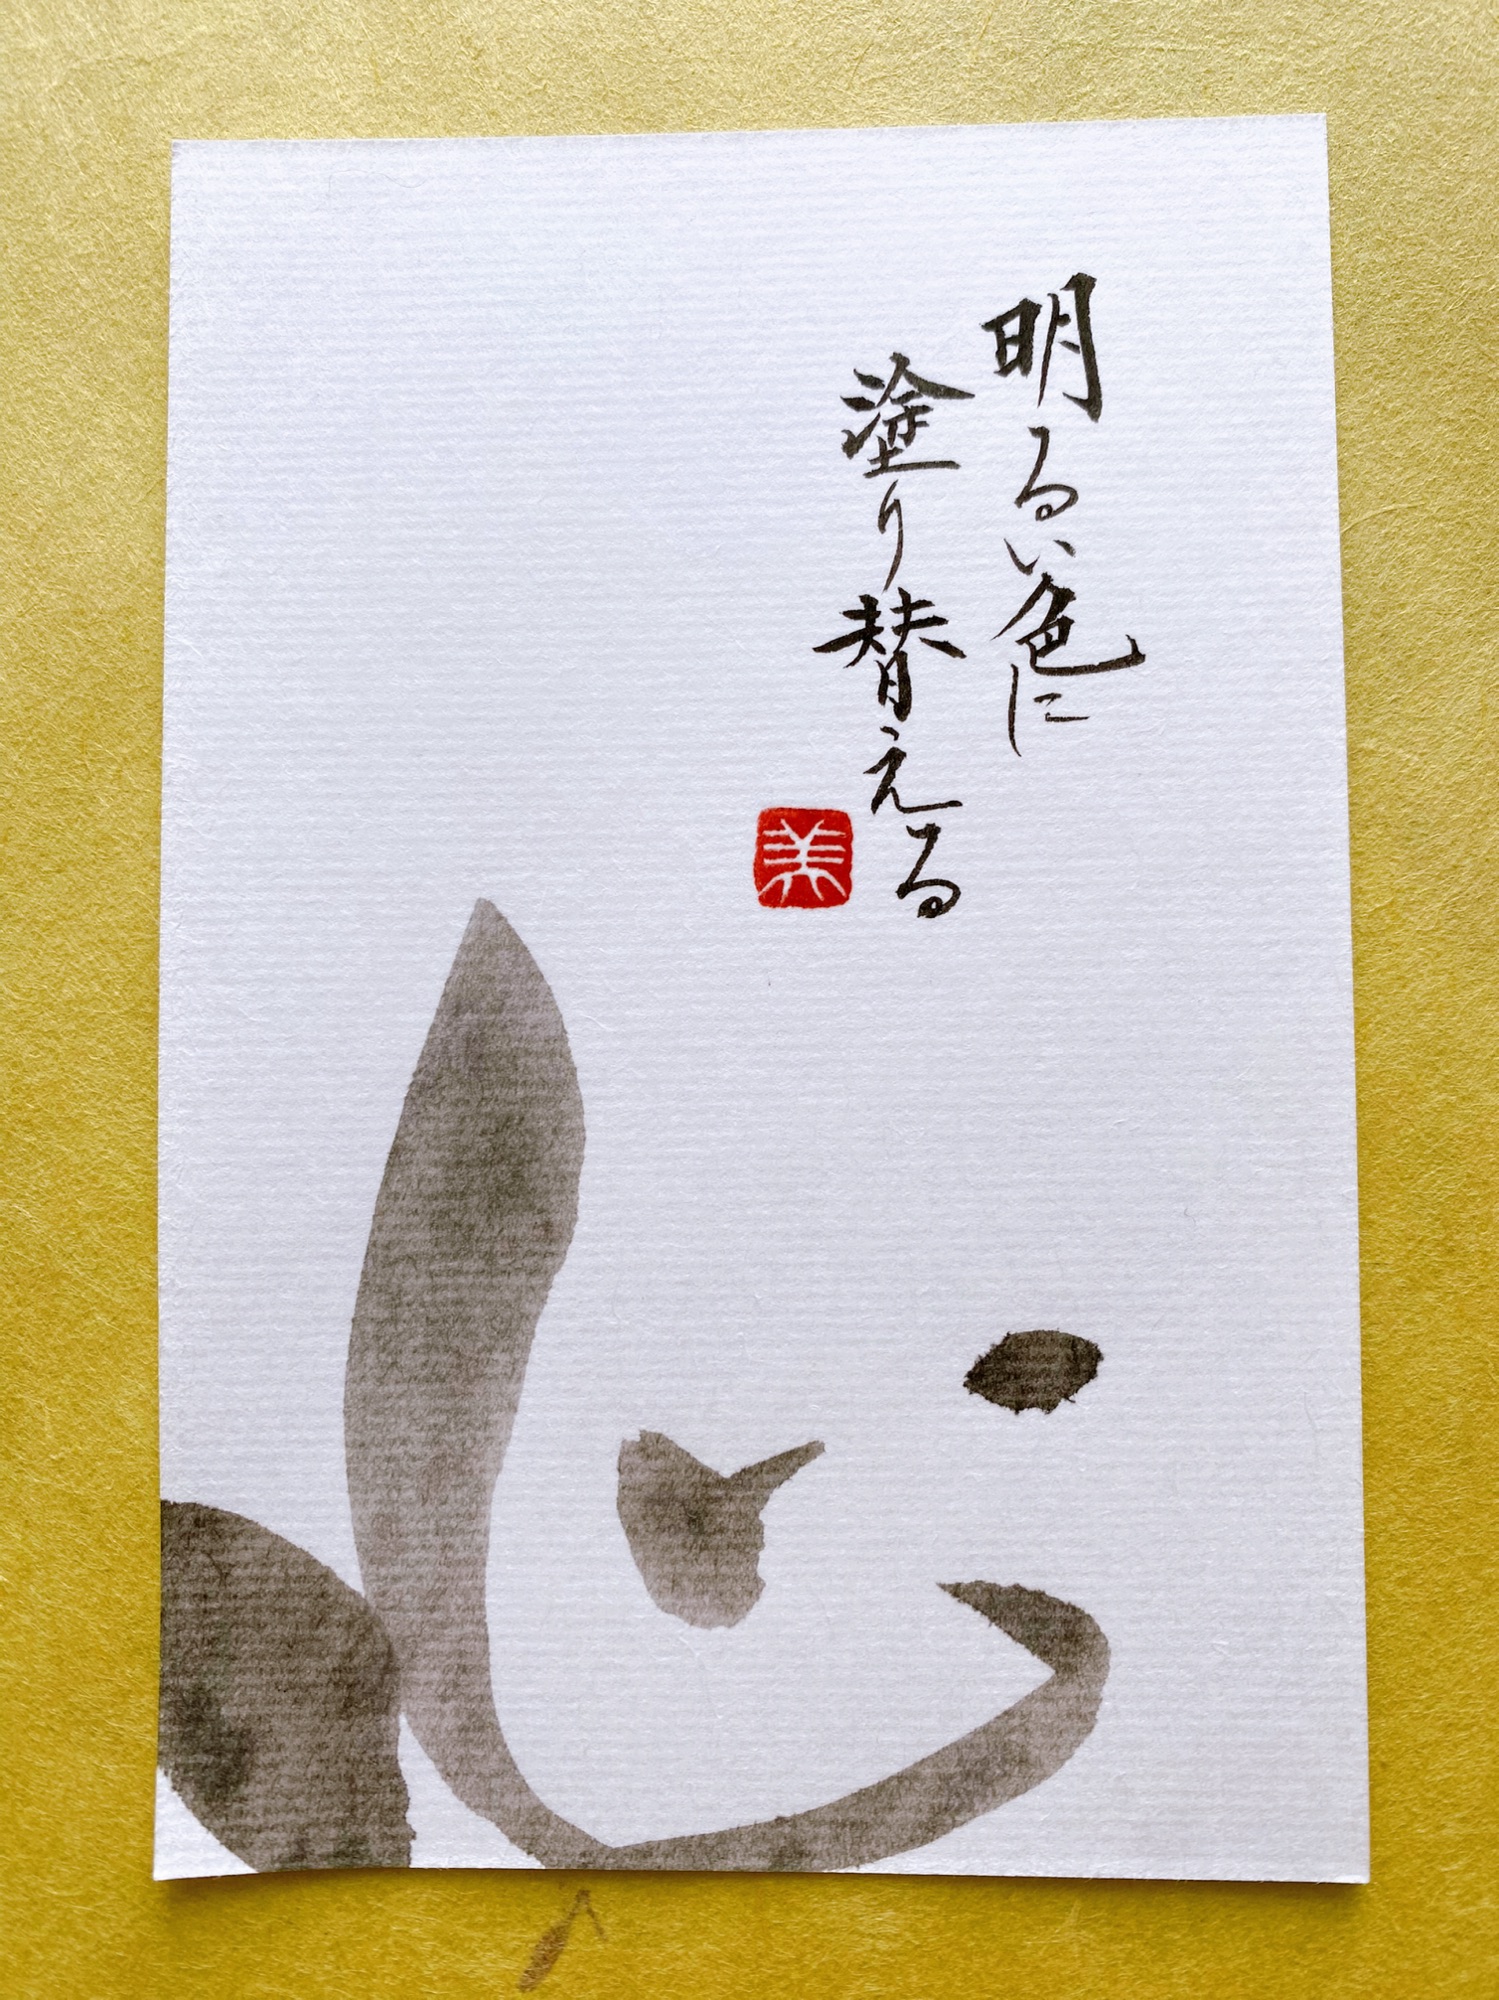 明るい色に
塗り替える
美
心